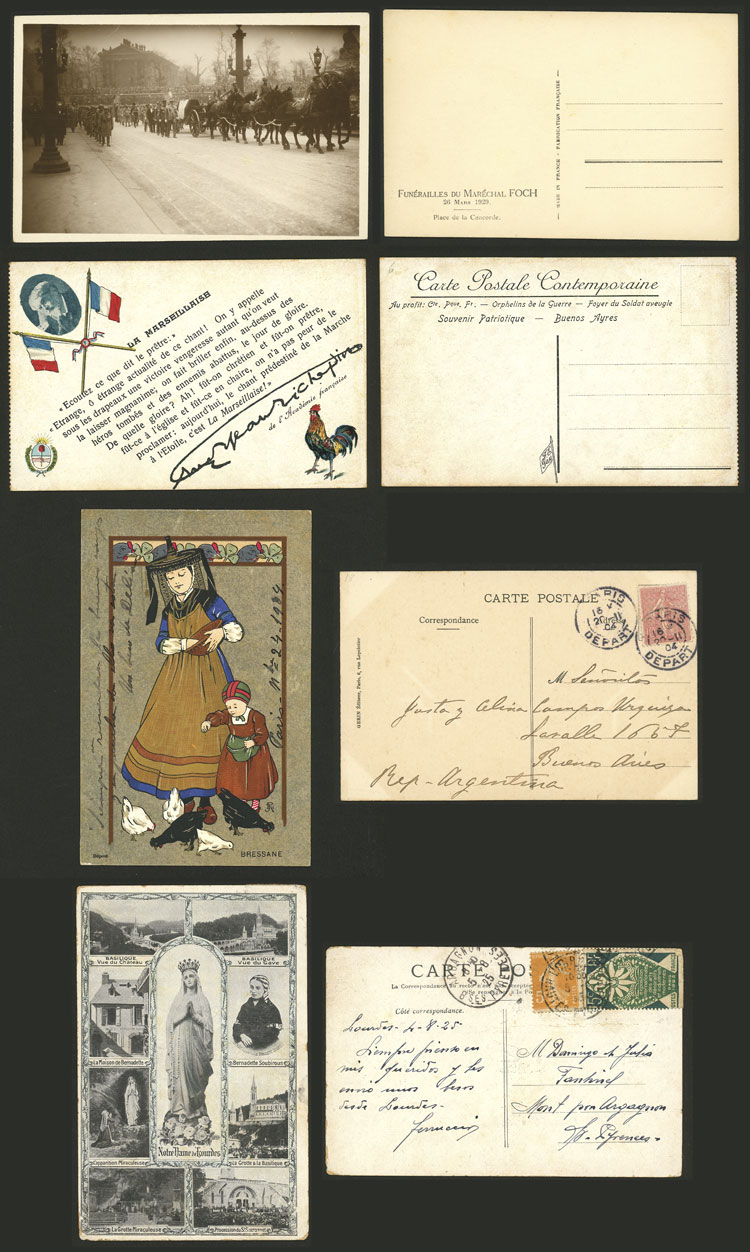 FUNÉRAILLES DU MARÉCHAL FOCH
26 MARS 1929.
Place de la Concorde.
MADE IN FRANCE - FABRICATION FRANÇAISE
LA MARSEILLAISE
« Ecoutez ce que dit le prêtre: »
« Etrange, ô étrange actualité de ce chant! On y appelle
sous les drapeaux une victoire vengeresse autant qu'on veut
la laisser magnanime; on fait briller enfin, au-dessus des
héros tombés et des ennemis abattus, le jour de gloire.
De quelle gloire? Ah! fût-on chrétien et fût-on prêtre,
fût-ce à l'église et fût-ce en chaire, on n'a pas peur de le
proclamer: aujourd'hui, le chant prédestiné de la Marche
à l'Etoile, c'est La Marseillaise! »
Jean Richepin
de l'Académie française
6
Carte Postale Contemporaine
Au profit: Cte. Pove. Fr. — Orphelins de la Guerre — Foyer du Soldat aveugle
Souvenir Patriotique — Buenos Ayres
Siempre
Paris
BRESSANE
Déposé
CARTE POSTALE
Correspondance
Adresse
PARIS
DEPART
16
20-11
04
PARIS
DEPART
16
20-11
04
M Señoritas
Justa y Celina Campos Urquiza
Lavalle 1667
Buenos Aires
Rep-Argentina
BASILIQUE
Vue du Château
BASILIQUE
Vue du Gave
La Maison de Bernadette
Bernadette Soubirous
L'apparition Miraculeuse
La Grotte & la Basilique
Notre Dame de Lourdes
La Grotte Miraculeuse
Procession du St Sacrement
CARTE POS
La Correspondance au recto n'est pas acceptée
Côté correspondance.
Lourdes 4-8-25
Siempre pienso en
mis queridos y les
envio unos besos
desde Lourdes-
M Domingo de
Mont par Argagnon
Bs-Pyrenees-